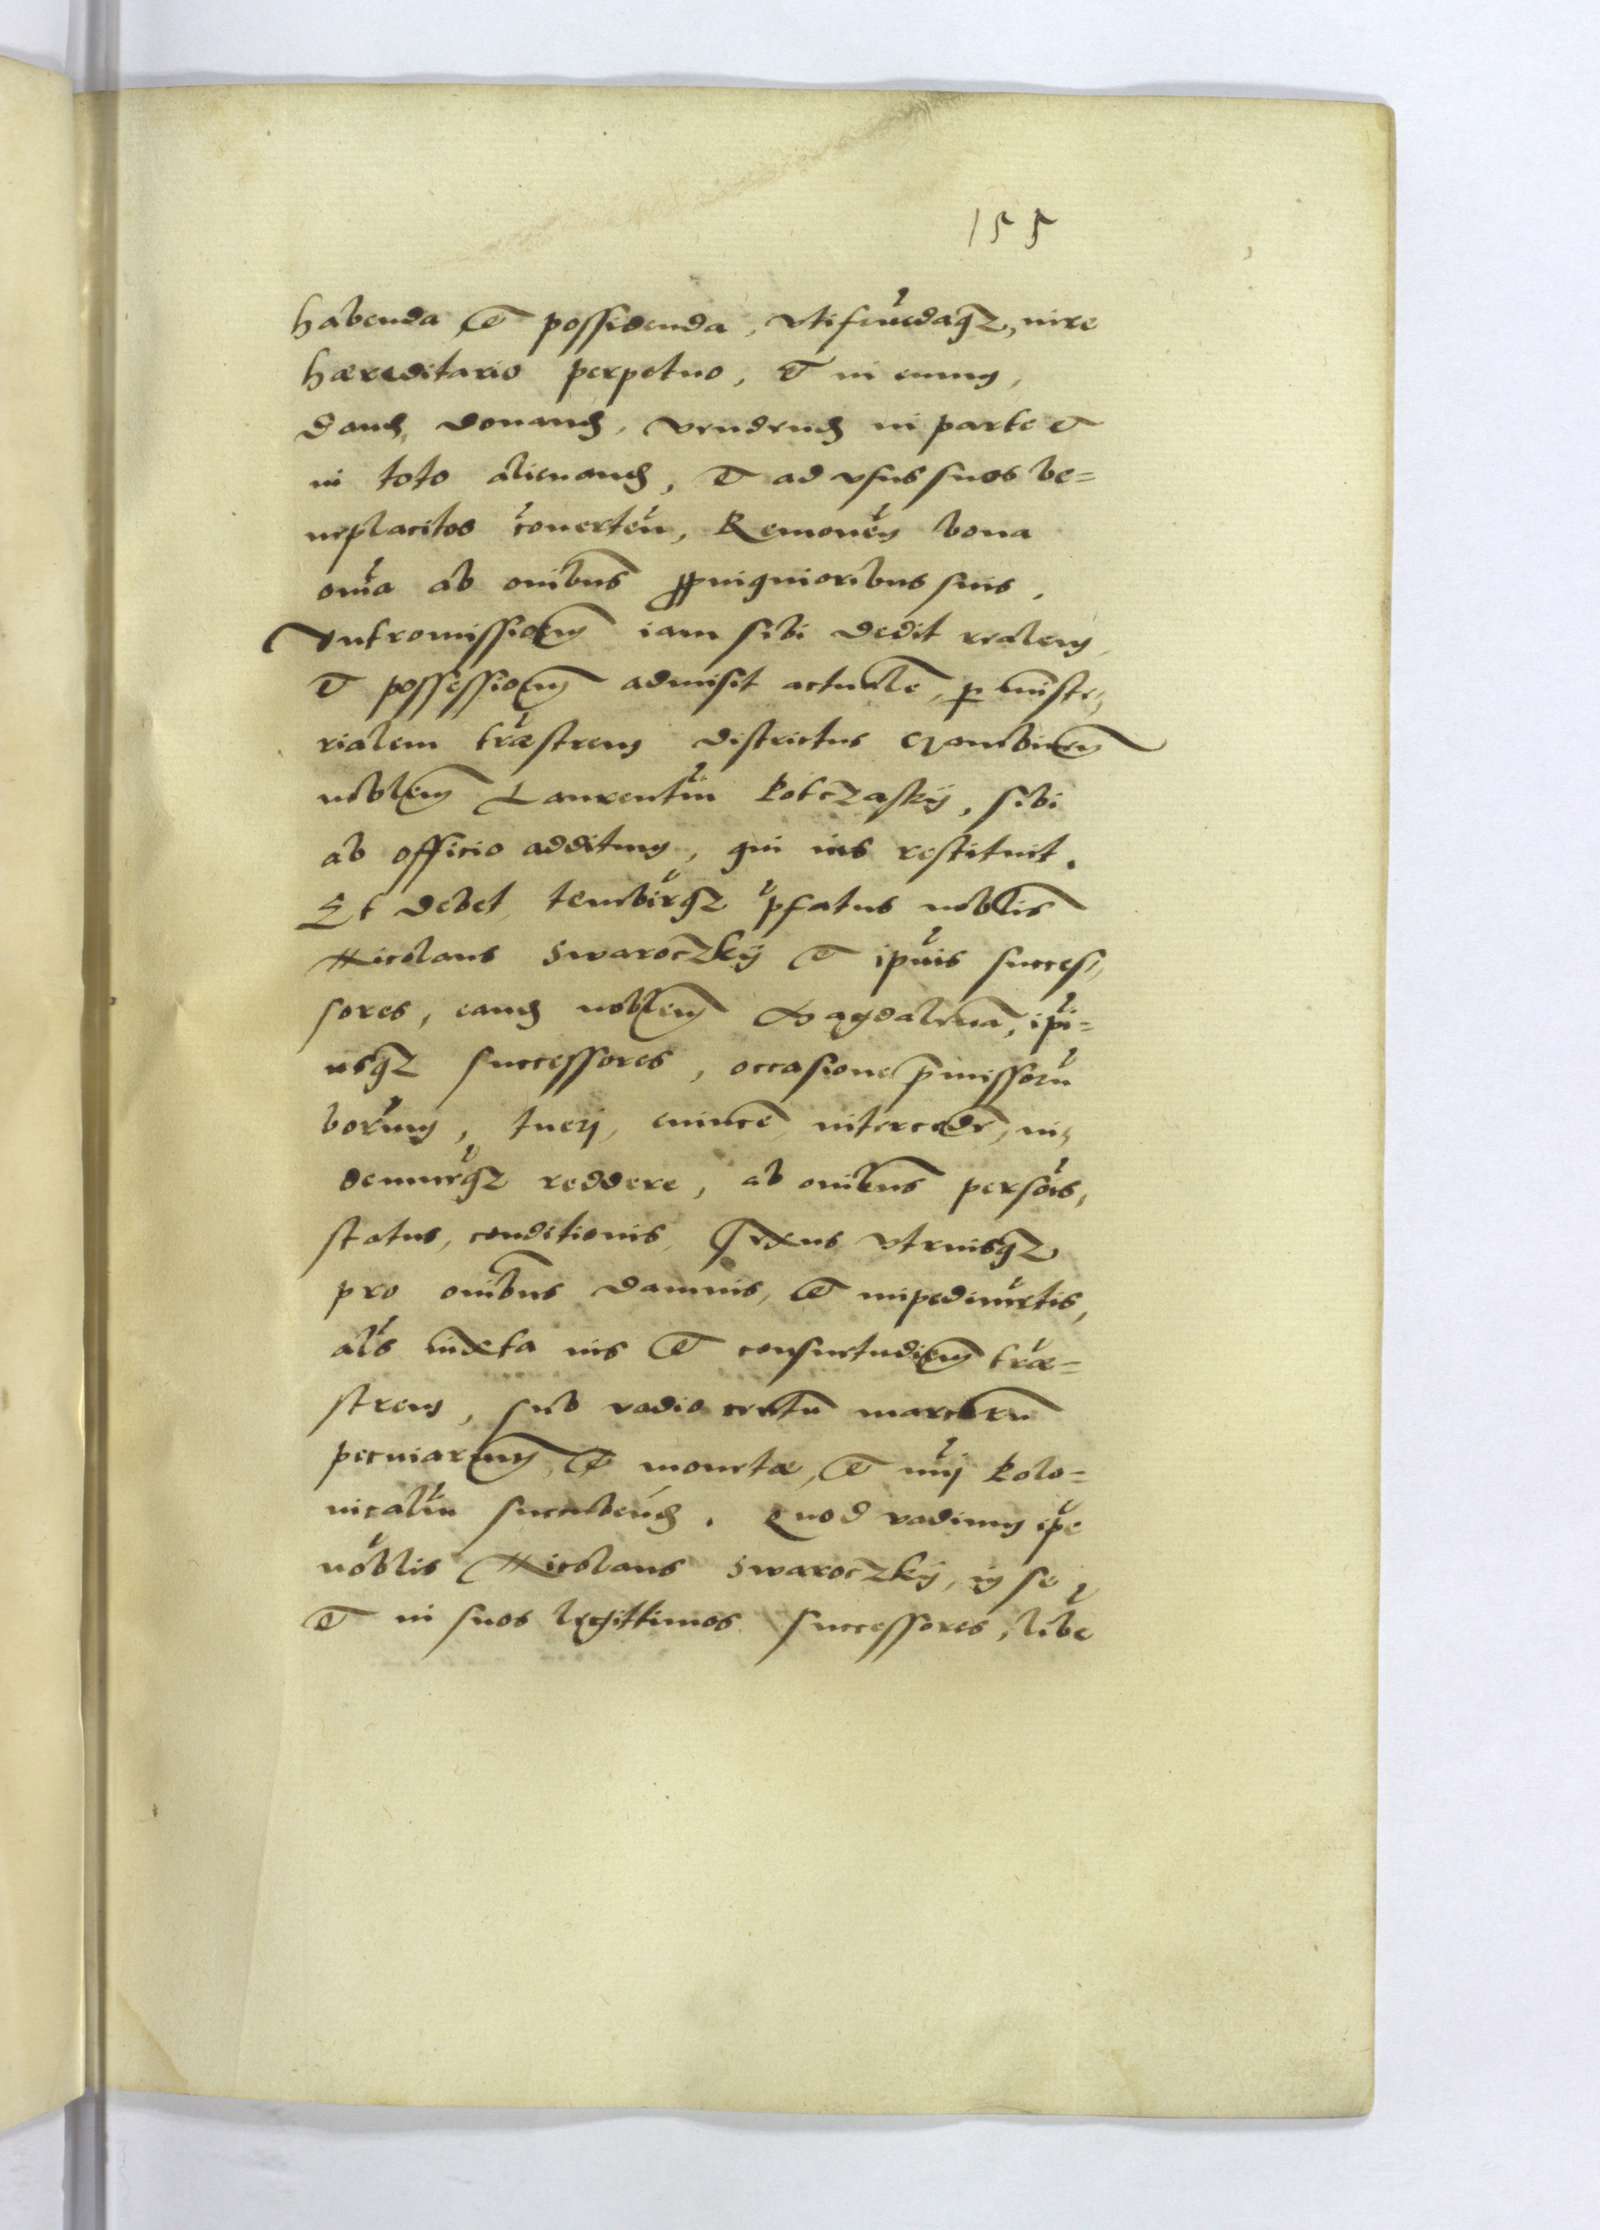 155
habenda et possidenda, vtifruedaqz, iure
haereditario perpetuo, et in eum,
dand, donand, vendend in parte et
in toto alienand, et ad vsus suos be=
neplacitos couerten, Remouen bona
omia ab omibus propinquioribus suis.
Intromissionem iam sibi dedit realem,
et possessionem admisit actuale, p minste,,
rialem terrestrem districtus
noblem Laurentiu Kobczasky, sibi
ab officio additum, qui ius restituit.
Et debet tenebirqz pfatus noblis
Nicolaus Swaroczky et ipuis succes,,
sores, eand noblem Magdalena, ipi=
usqz successores, occasione pmissoru
bonorum, tueri, euince, intercede, in,,
demnesqz reddere, ab omibus persois,
status, conditionis, sexus vtriusqz
pro omibus damnis, et impedimetis,
als iuxta ius et consuetudinem terrae=
strem, sub vadio centu marcaru
pecuniarum et monetae, et nui Polo=
nicaliu succubend. Quod vadium ipe
noblis Nicolaus Swaroczky, in se
et in suos legittimos successores, libe